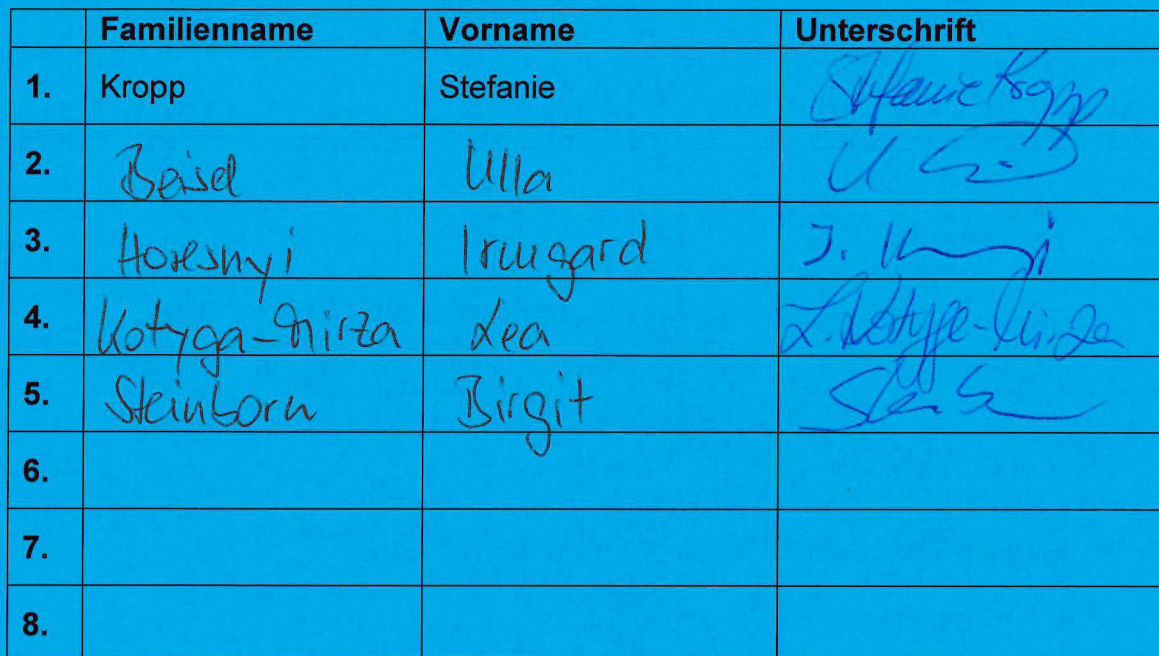 Familienname Vorname Unterschrift
1. Kropp Stefanie Stefanie Kropp
2. Beisel Ulla U
3. Irmgard I.
4. Kotyga-Mirza Lea L. Kotyga-Mirza
5. Steinborn Birgit
6.
7.
8.